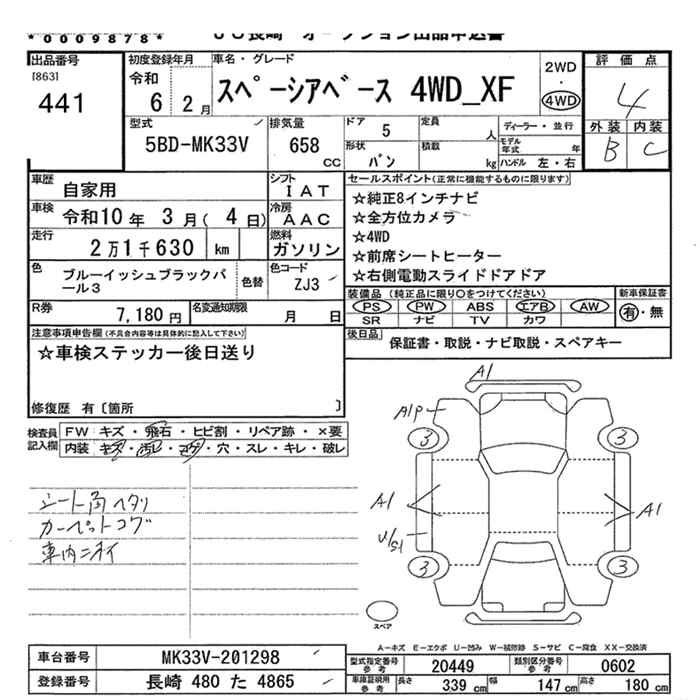 *0009878*
出品番号
[863]
441
初度登録年月
令和
6 2月
車名・グレード
スペーシアベース 4WD_XF
2WD
・
4WD
評価点
4
外装 内装
B C
型式
5BD-MK33V
排気量
658
CC
ドア
5
形状
バン
定員
人
積載
kg
ディーラー・並行
モデル年式 年
ハンドル 左・右
車歴
自家用
シフト
IAT
車検
令和10年 3月(4日)
冷房
AAC
走行
2万1千630 km
燃料
ガソリン
色
ブルーイッシュブラックパール3
色替
色コード
ZJ3
R券
7,180円
名変通知期限
月 日
セールスポイント(正常に機能するものに限ります)
☆純正8インチナビ
☆全方位カメラ
☆4WD
☆前席シートヒーター
☆右側電動スライドドアドア
装備品 (純正品に限り○をつけてください)
PS PW ABS エアB AW
SR ナビ TV カワ
新車保証書
有・無
後日品
保証書・取説・ナビ取説・スペアキー
注意事項申告欄(不具合内容等は具体的に記入して下さい)
☆車検ステッカー後日送り
修復歴 有〔箇所 〕
検査員記入欄
FW キズ・飛石・ヒビ割・リペア跡・×要
内装 キズ・汚レ・コゲ・穴・スレ・キレ・破レ
シート角ヘタリ
カーペットコゲ
車内ニオイ
A1
A1P
3
3
A1
A1
U/S1
3
3
スペア
A-キズ E-エクボ U-凹み W-補修跡 S-サビ C-腐食 XX-交換済
車台番号
MK33V-201298
登録番号
長崎 480 た 4865
型式指定番号
参考
20449
類別区分番号
参考
0602
車庫証明用
参考
長さ 339cm 幅 147cm 高さ 180cm